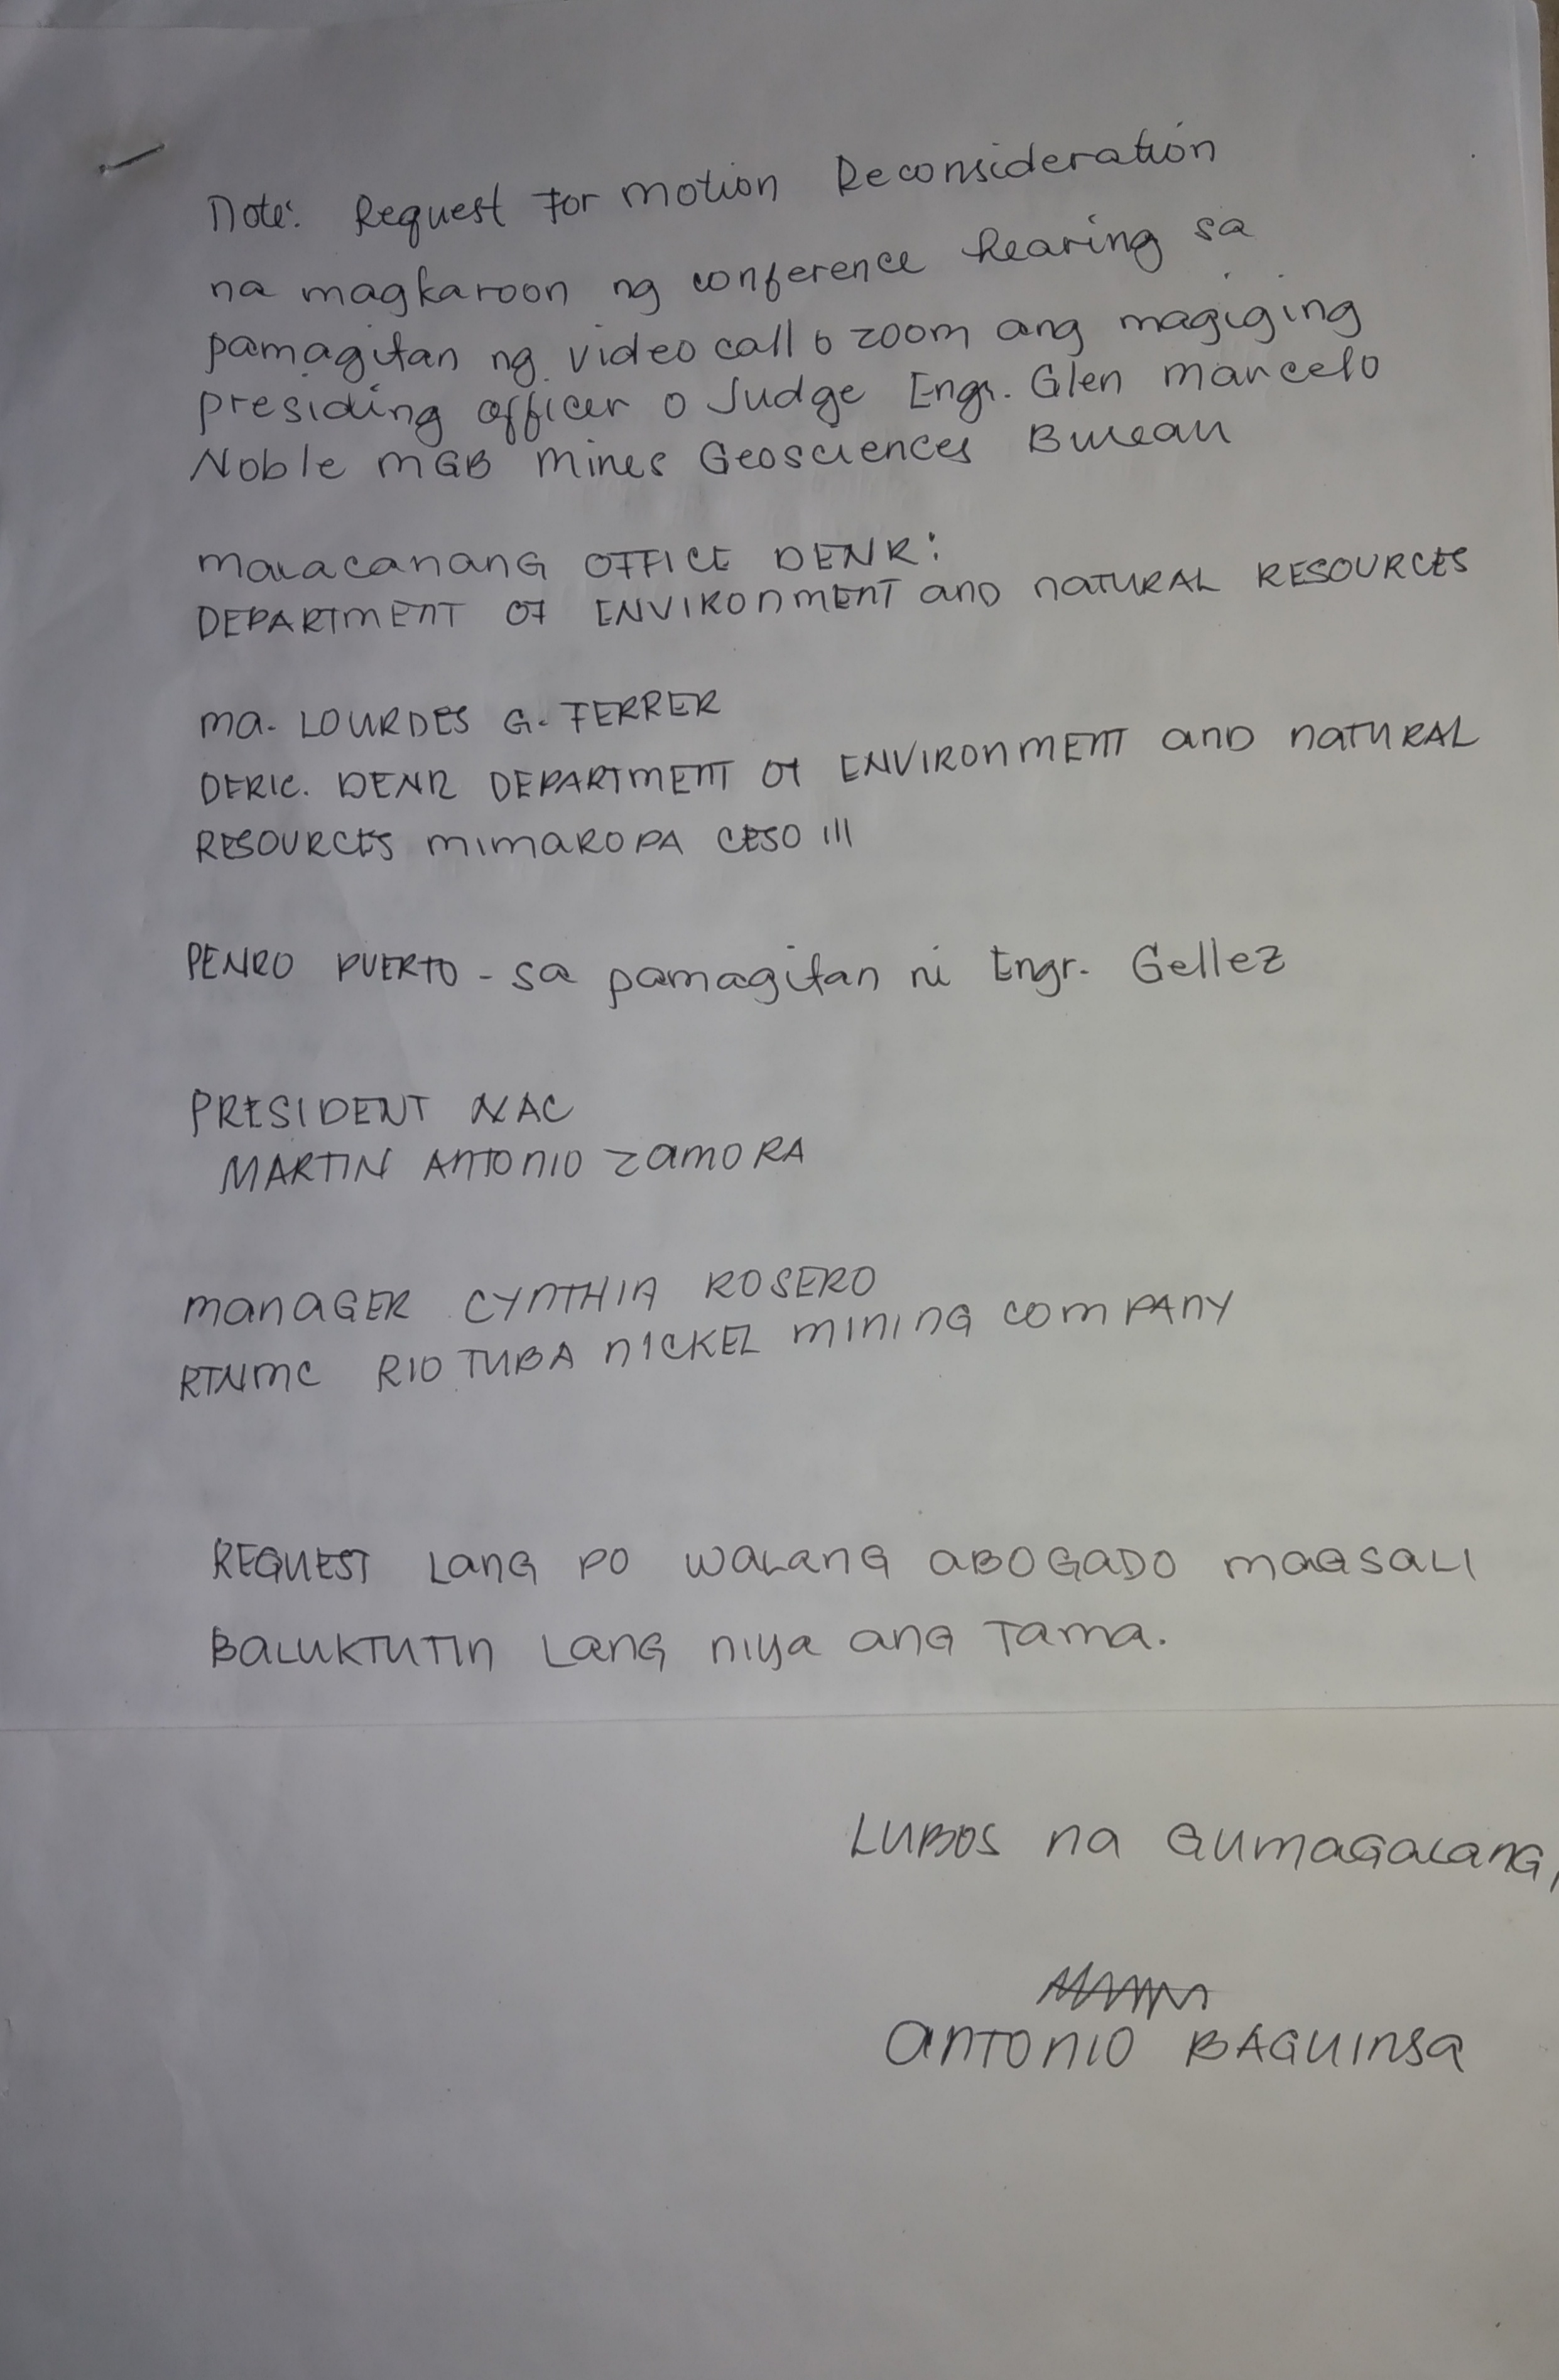 Note: Request For motion Reconsideration
na magkaroon ng conference hearing sa
pamagitan ng video call o zoom ang magiging
presiding officer o Judge Engr. Glen Marcelo
Noble MGB Mines Geosciences Bureau
Malacanang OFFICE DENR:
DEPARTMENT OF ENVIRONMENT and NATURAL RESOURCES
Ma. LOURDES G. FERRER
DERIC. DENR DEPARTMENT OF ENVIRONMENT and NATURAL
RESOURCES MIMAROPA CESO III
PENRO PUERTO - sa pamagitan ni Engr. Gellez
PRESIDENT NAC
MARTIN ANTONIO ZAMORA
MANAGER CYNTHIA ROSERO
RTNMC RIO TUBA NICKEL MINING COMPANY
REQUEST Lang PO WALANG ABOGADO MAGSALI
BALUKTUTIN LANG niya ANG Tama.
LUBOS na GUMAGALANG,
ANTONIO BAGUINSA